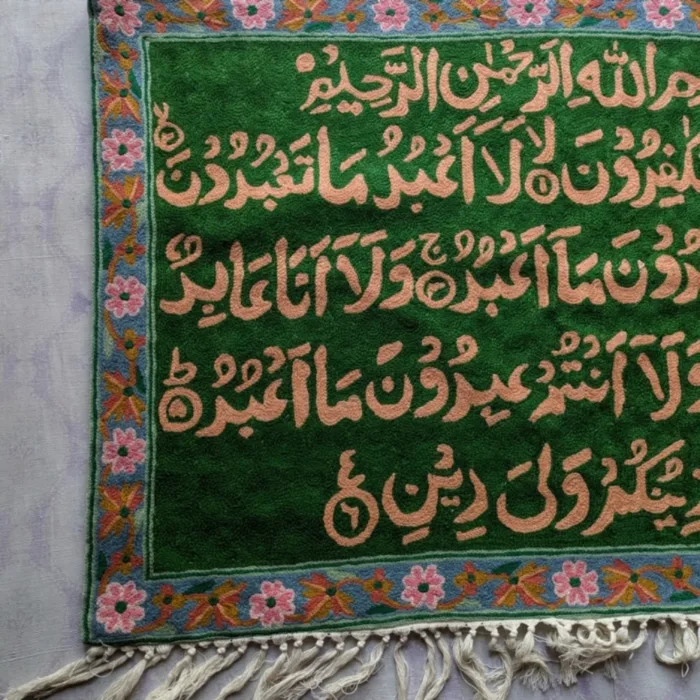 م اللهِ الرَّحْمٰنِ الرَّحِيْمِ
كٰفِرُوْنَ ١ لَا اَعْبُدُ مَا تَعْبُدُوْنَ
دُوْنَ مَا اَعْبُدُ ٣ وَلَا اَنَا عَابِدٌ
وَلَا اَنْتُمْ عٰبِدُوْنَ مَا اَعْبُدُ ٥
يْنُكُمْ وَلِيَ دِيْنِ ٦